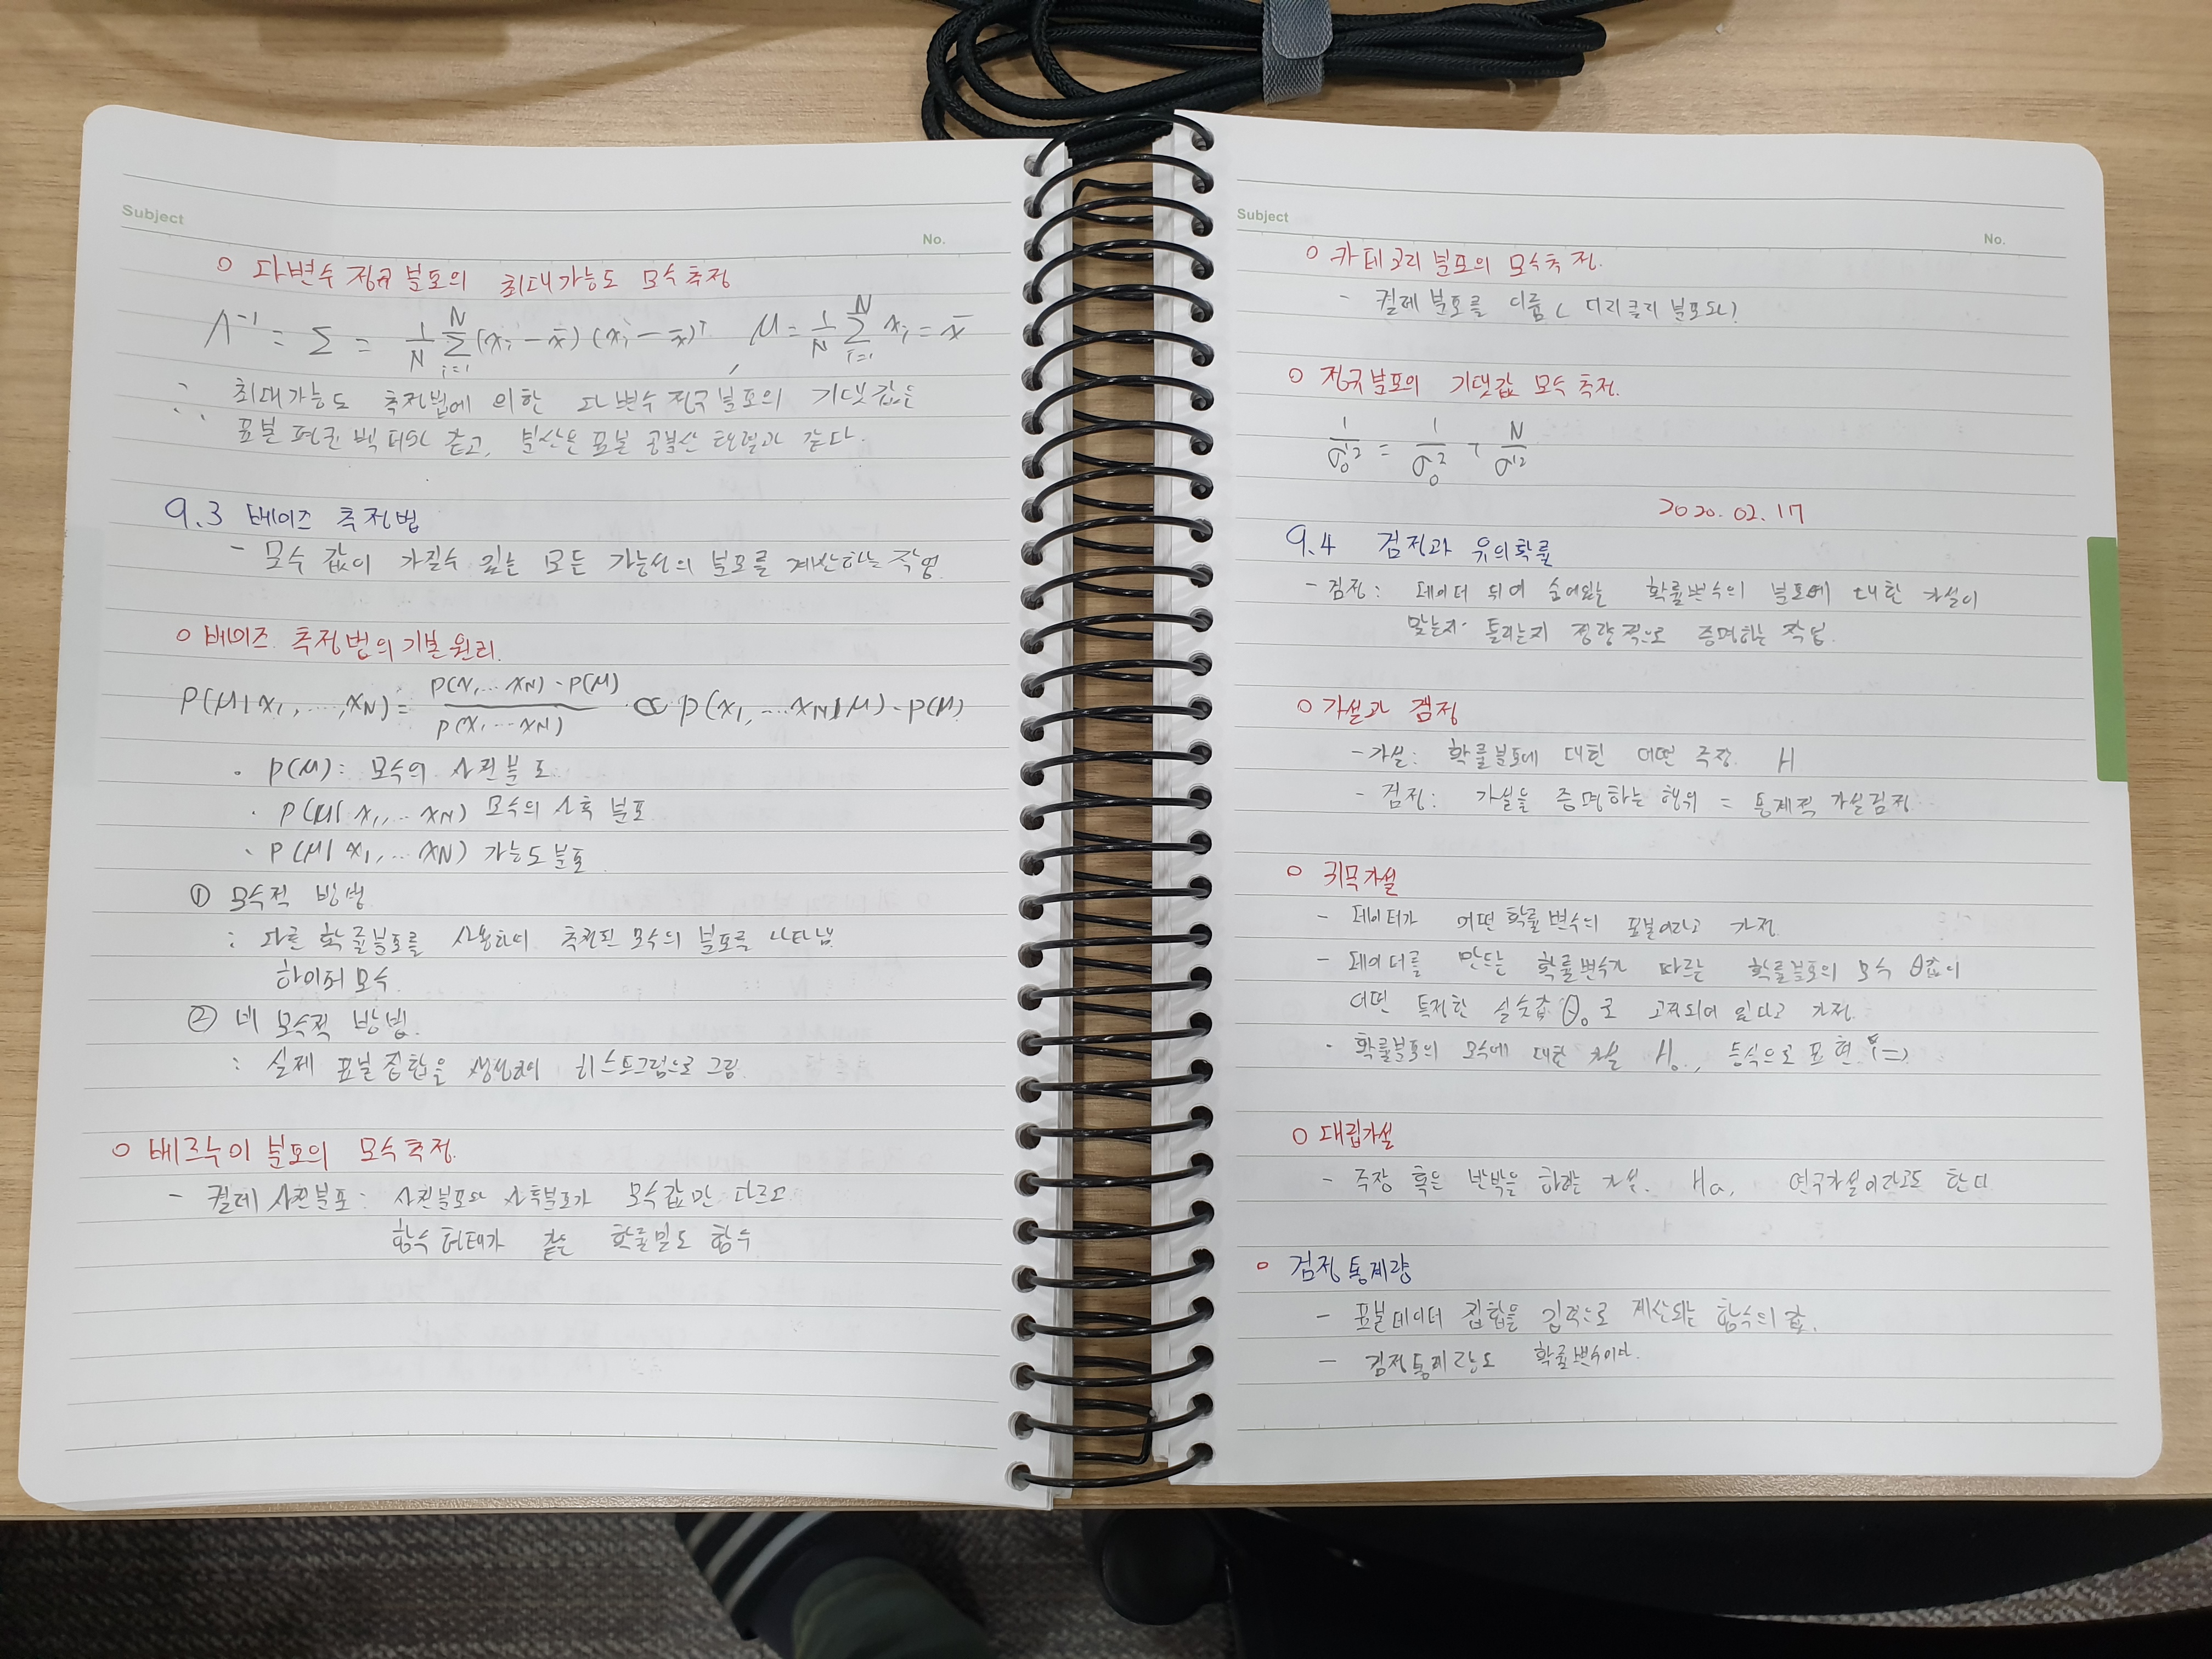 Subject
No.
○ 다변수 정규분포의 최대가능도 모수추정
Λ⁻¹ = Σ = 1/N Σ_{i=1}^{N} (xᵢ - x̄)(xᵢ - x̄)ᵀ, μ = 1/N Σ_{i=1}^{N} xᵢ = x̄
∴ 최대가능도 추정법에 의한 다변수 정규분포의 기댓값은
표본 평균 벡터와 같고, 분산은 표본 공분산 행렬과 같다.
9.3 베이즈 추정법
- 모수 값이 가질수 있는 모든 가능성의 분포를 계산하는 작업
○ 베이즈 추정법의 기본원리.
P(μ|x₁, ..., x_N) = P(x₁...x_N)·P(μ) / P(x₁...x_N) ∝ P(x₁, ...x_N|μ)·P(μ)
· P(μ): 모수의 사전분포
· P(μ|x₁, ... x_N) 모수의 사후 분포
· P(μ|x₁, ... x_N) 가능도분포
① 모수적 방법
: 다른 확률분포를 사용하여 추정된 모수의 분포를 나타냄
하이퍼모수
② 비 모수적 방법.
: 실제 표본집합을 생성하여 히스토그램으로 그림
○ 베르누이 분포의 모수추정.
- 켤레 사전분포: 사전분포와 사후분포가 모수값만 다르고
함수 형태가 같은 확률밀도 함수
Subject
No.
○ 카테고리 분포의 모수추정.
- 켤레 분포를 이룸 ( 디리클리 분포와!
○ 정규분포의 기댓값 모수 추정.
1/σ₀'² = 1/σ₀² + N/σ²
2020.02.17
9.4 검정과 유의확률
- 검정: 데이터 뒤에 숨어있는 확률변수의 분포에 대한 가설이
맞는지 틀리는지 정량적으로 증명하는 작업.
○ 가설과 검정
- 가설: 확률분포에 대한 어떤 주장. H
- 검정: 가설을 증명하는 행위 = 통계적 가설검정
○ 귀무가설
- 데이터가 어떤 확률변수의 표본이라고 가정
- 데이터를 만드는 확률변수가 따르는 확률분포의 모수 θ값이
어떤 특정한 실숫값 θ₀로 고정되어 있다고 가정.
· 확률분포의 모수에 대한 가설 H₀., 등식으로 표현 (=)
○ 대립가설
- 주장 혹은 반박을 하는 가설. Ha, 연구가설이라고도 한다
○ 검정통계량
- 표본데이터 집합을 입력으로 계산되는 함수의 값.
- 검정통계량도 확률변수이다.